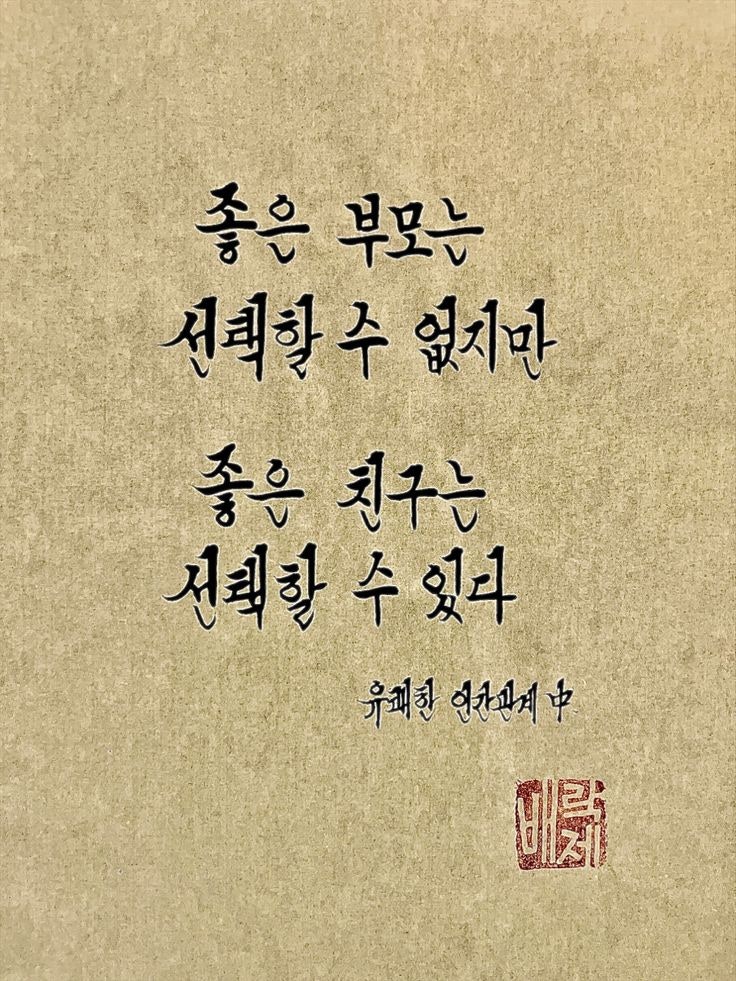 좋은 부모는
선택할 수 없지만
좋은 친구는
선택할 수 있다
유쾌한 인간관계 中
배락제